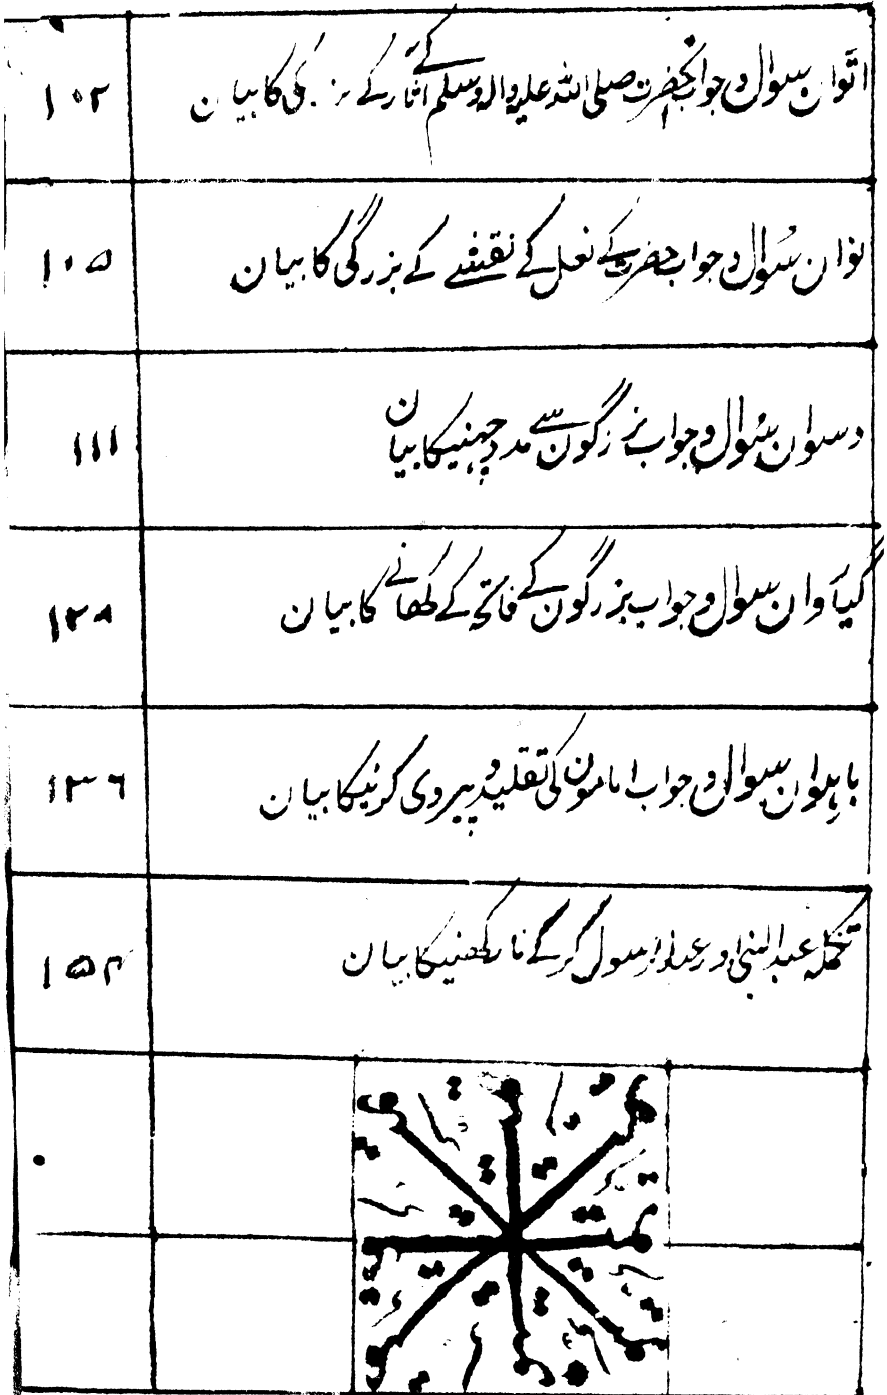 اتوان سوال و جواب آنحضرت صلی اللہ علیہ والہ وسلم کے اثار کے بزرگی کا بیان ۱۰۲
نوان سُوال و جواب حضرت کے نعل کے نقشے کے بزرگی کا بیان ۱۰۵
دسوان سُوال و جواب بزرگون سے مدد چہنیکا بیان ۱۱۱
گیاَوان سوال و جواب بزرگون کے فاتحہ کے کھانے کا بیان ۱۲۸
باہلوان سوال و جواب امامون کی تقلید و پیروی کرنیکا بیان ۱۳۶
تکملہ عبد النبی اور عبد الرسول کرکے نا رکھنیکا بیان ۱۵۴